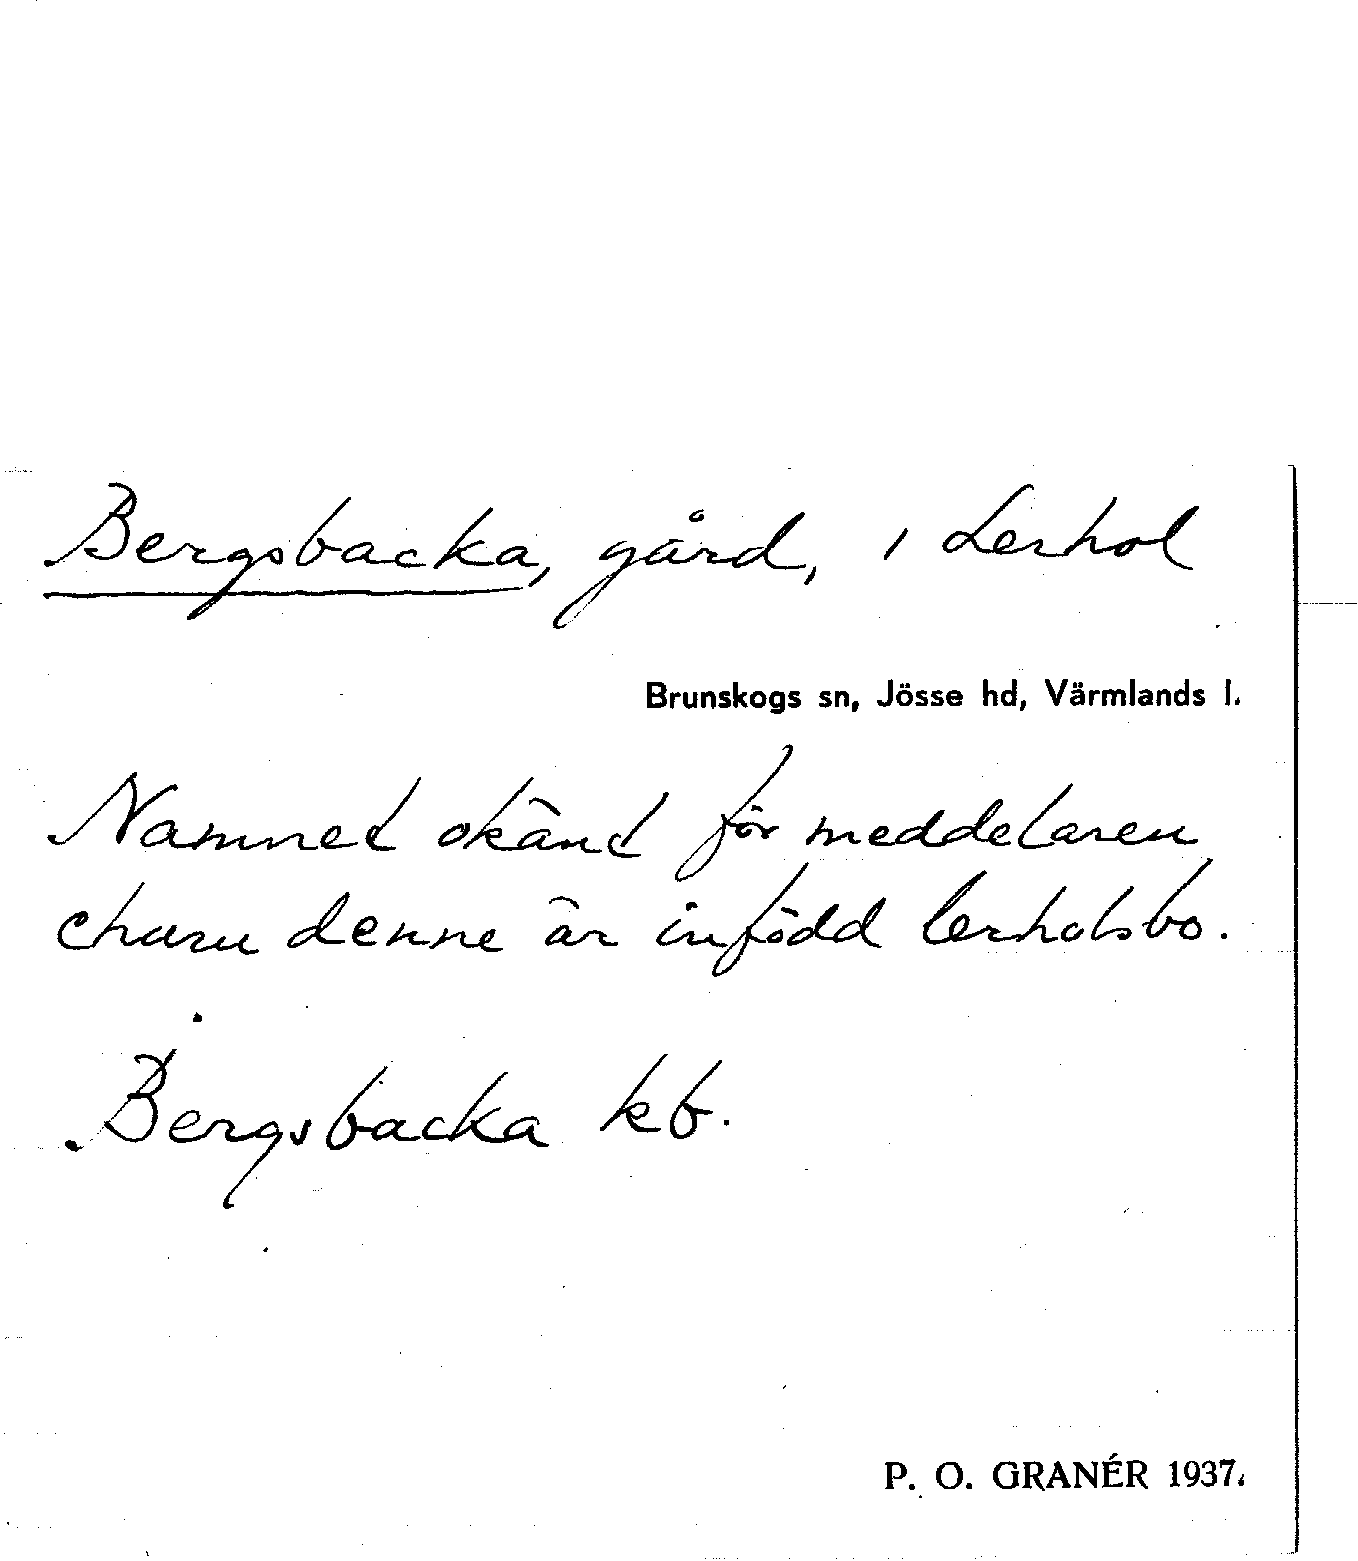 Bergsbacka, gård, i Lerhol
Brunskogs sn, Jösse hd, Värmlands l.
Namnet okänt för meddelaren
ehuru denne är infödd lerholsbo.
Bergsbacka kb.
P. O. GRANÉR 1937.